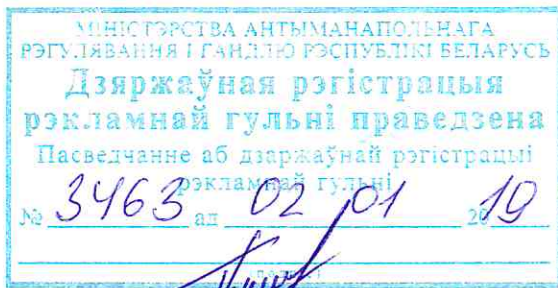 МІНІСТЭРСТВА АНТЫМАНАПОЛЬНАГА
РЭГУЛЯВАННЯ І ГАНДЛЮ РЭСПУБЛІКІ БЕЛАРУСЬ
Дзяржаўная рэгістрацыя
рэкламнай гульні праведзена
Пасведчанне аб дзяржаўнай рэгістрацыі
рэкламнай гульні
№ 3463 ад 02 01 2019
подпіс